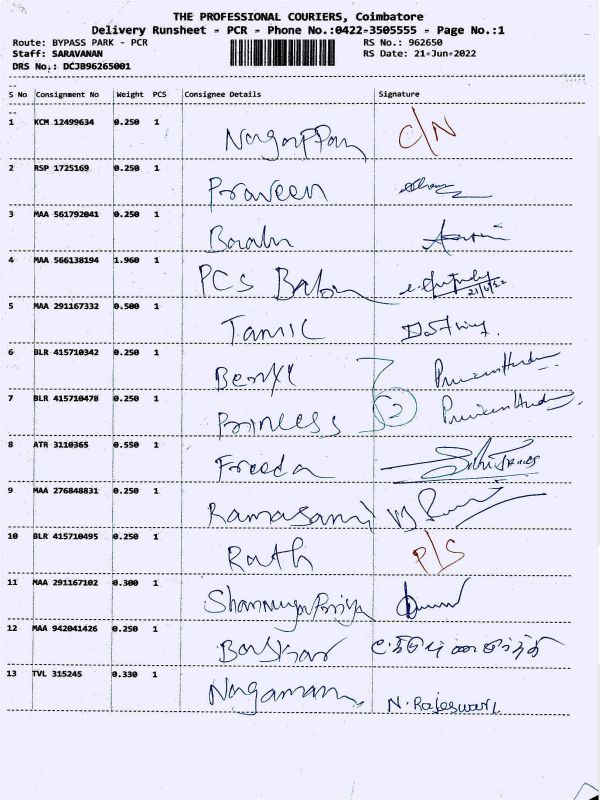 THE PROFESSIONAL COURIERS, Coimbatore
Delivery Runsheet - PCR - Phone No.:0422-3505555 - Page No.:1
Route: BYPASS PARK - PCR RS No.: 962650
Staff: SARAVANAN RS Date: 21-Jun-2022
DRS No.: DCJB96265001
S No Consignment No Weight PCS Consignee Details Signature
1 KCM 12499634 0.250 1 Nagappan C/N
2 RSP 1725169 0.250 1 Praveen
3 MAA 561792041 0.250 1
4 MAA 566138194 1.960 1 PCS 21/6/22
5 MAA 291167332 0.500 1 Tamil
6 BLR 415710342 0.250 1
7 BLR 415710478 0.250 1 Princess 2
8 ATR 3110365 0.550 1 Freeda
9 MAA 276848831 0.250 1 Ramasami
10 BLR 415710495 0.250 1 P/S
11 MAA 291167102 0.300 1 Shanmuga Priya
12 MAA 942041426 0.250 1 Baskar
13 TVL 315245 0.330 1 Nagamani N. Rajeswari